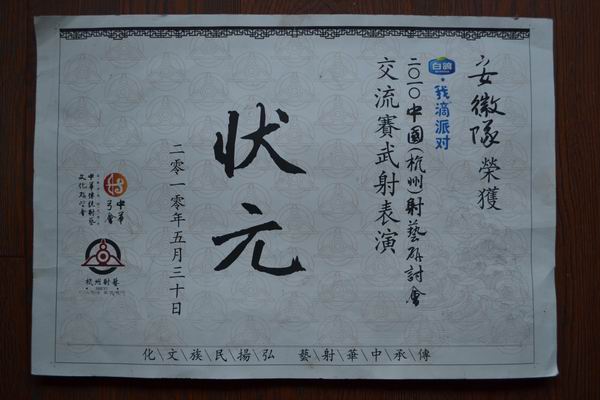 安徽隊 榮獲
·我滴派对
二〇一〇中國(杭州)射藝研討會
交流賽武射表演
状元
二零一零年五月三十日
中華弓會
中華傳統射藝
杭州射藝
傳\承\中\華\射\藝 弘\揚\民\族\文\化